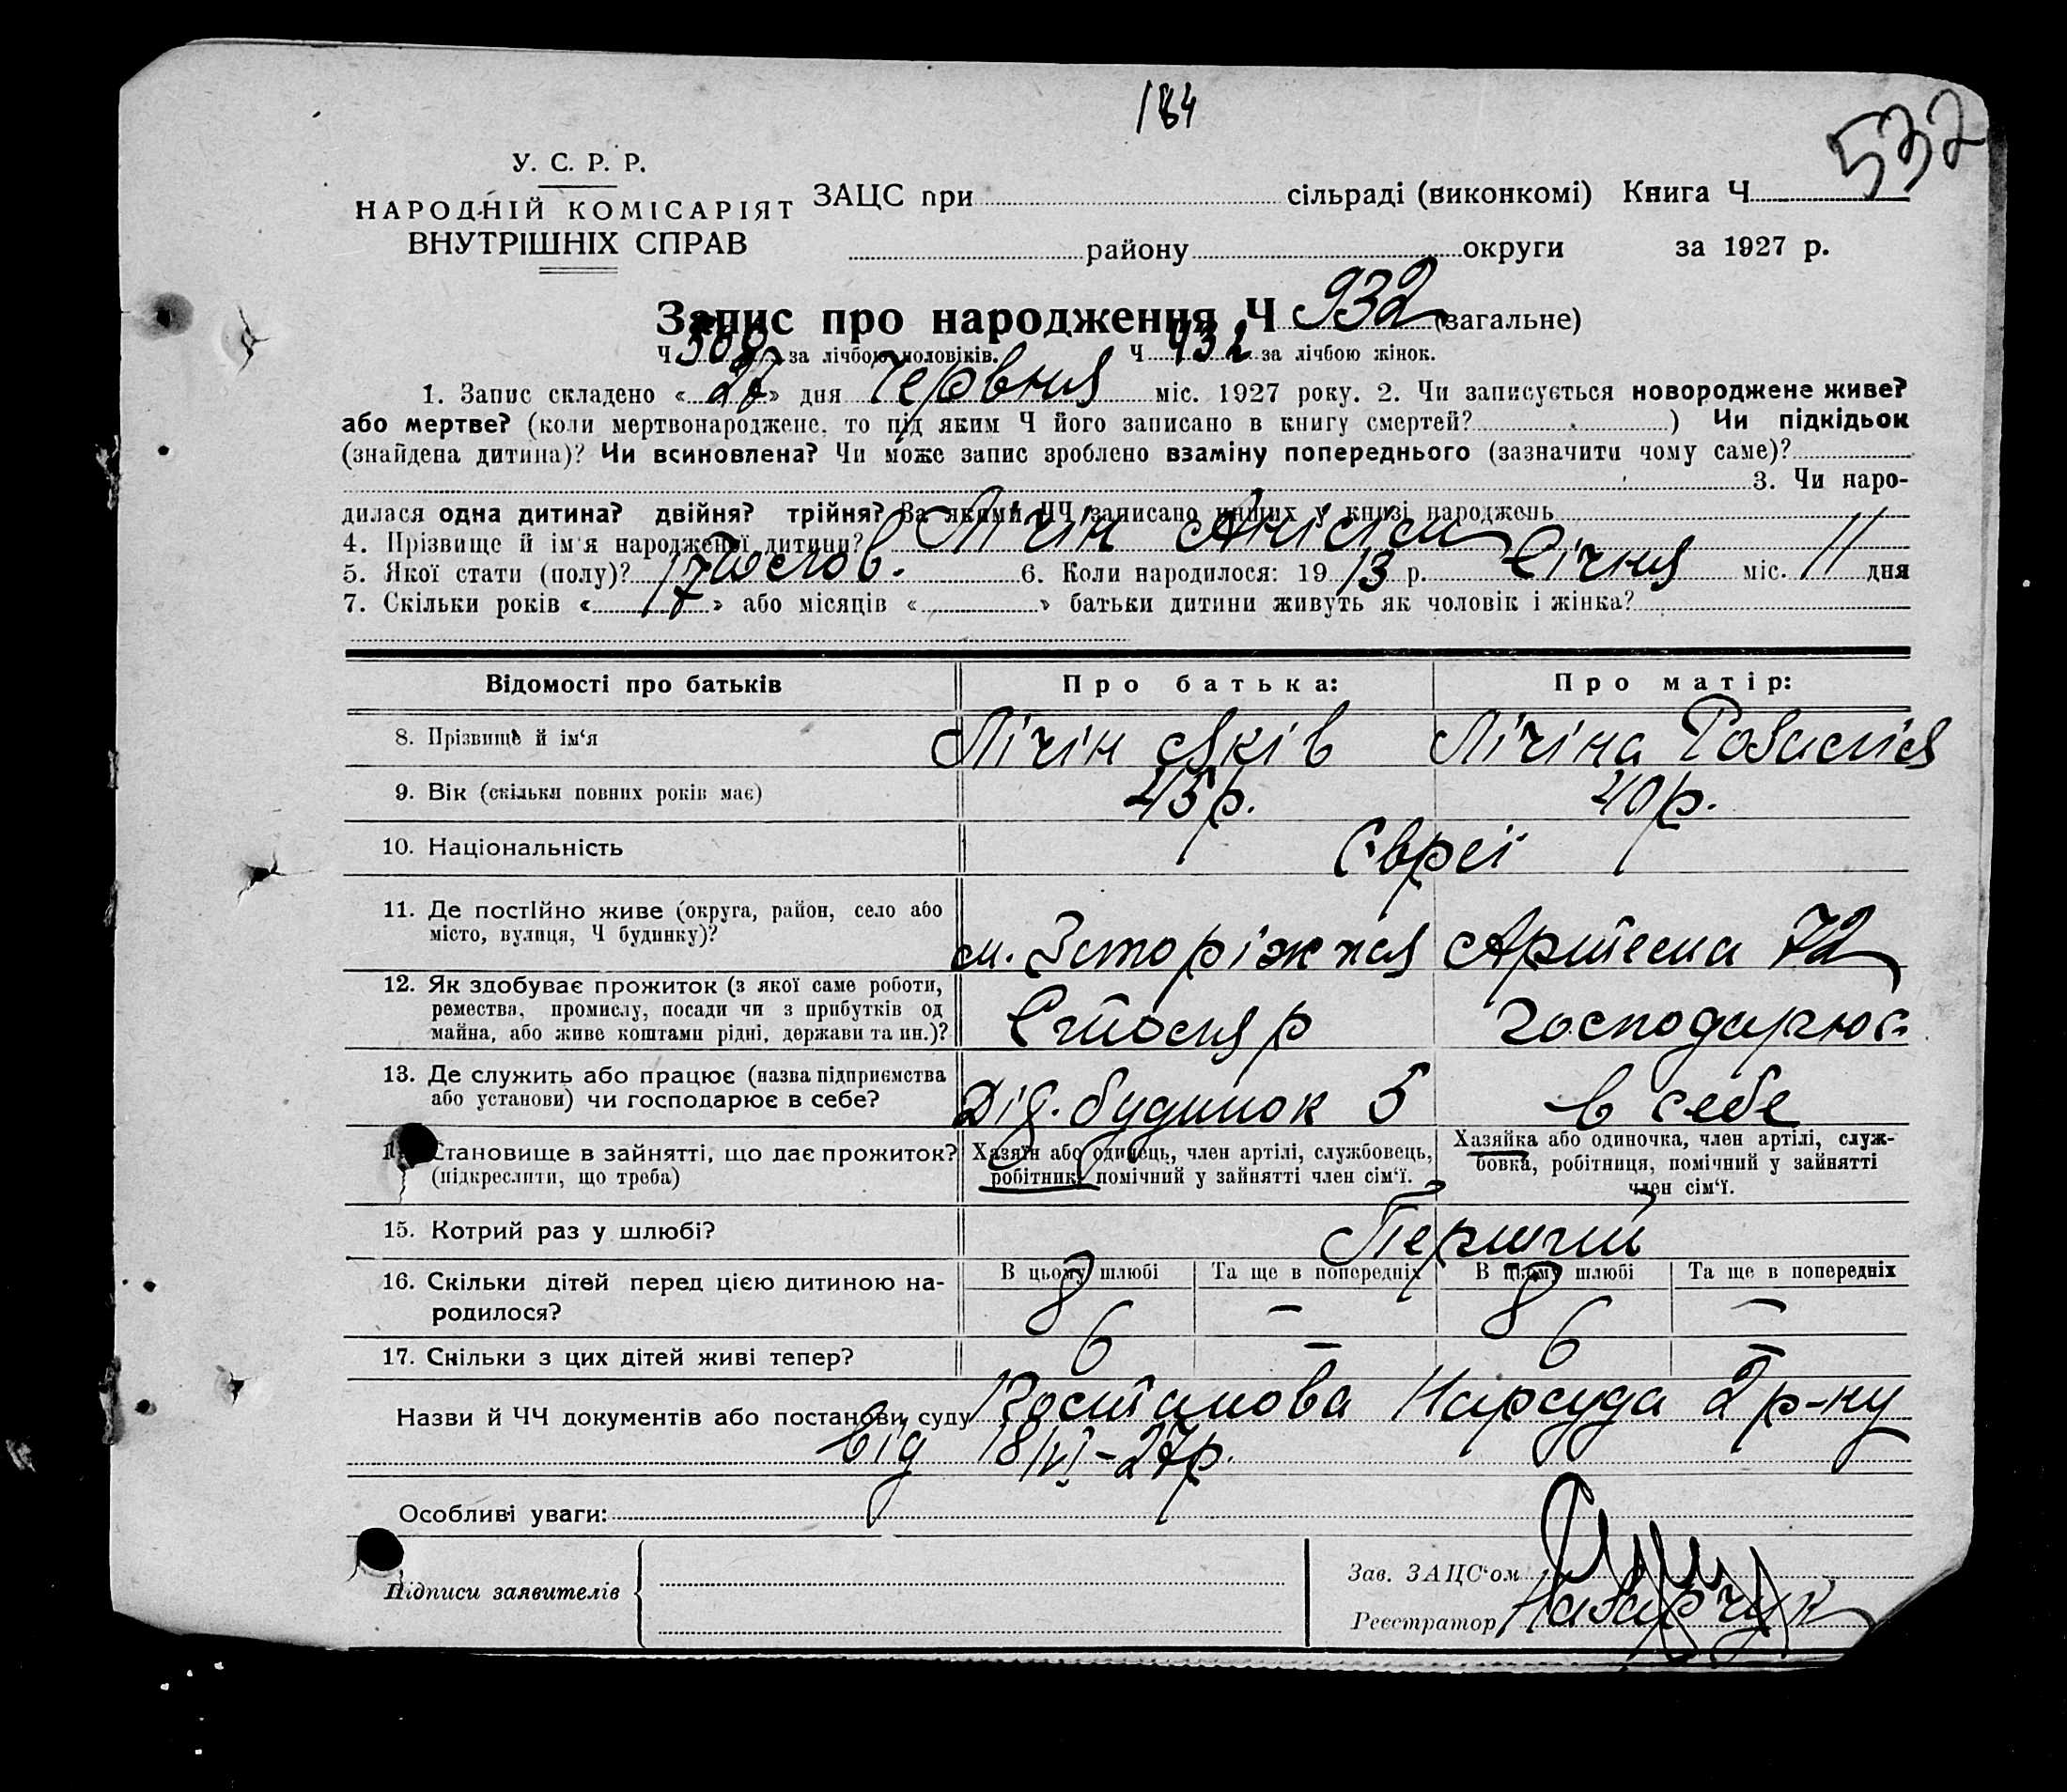 184
532
У. С. Р. Р.
НАРОДНІЙ КОМІСАРІЯТ
ВНУТРІШНІХ СПРАВ
ЗАЦС при сільраді (виконкомі) Книга Ч
району округи за 1927 р.
Запис про народження Ч 932 (загальне)
Ч 500 за лічбою чоловіків. Ч 432 за лічбою жінок.
1. Запис складено « 27 » дня Червня міс. 1927 року. 2. Чи записується новороджене живе?
або мертве? (коли мертвонароджене, то під яким Ч його записано в книгу смертей? ) Чи підкідьок
(знайдена дитина)? Чи всиновлена? Чи може запис зроблено взаміну попереднього (зазначити чому саме)?
3. Чи наро-
дилася одна дитина? двійня? трійня? За якими ЧЧ записано инших у книзі народжень
4. Прізвище й ім'я народженої дитини? Лічін Анісім
5. Якої стати (полу)? Чолов. 6. Коли народилося: 1913 р. Січня міс. 11 дня
7. Скільки років « 17 » або місяців « » батьки дитини живуть як чоловік і жінка?
Відомості про батьків
Про батька:
Про матір:
8. Прізвище й ім'я Лічін Яків Лічіна Розалія
9. Вік (скільки повних років має) 45 р. 40 р.
10. Національність Євреї
11. Де постійно живе (округа, район, село або
місто, вулиця, Ч будинку)?
м. Запоріжжя Артема 72
12. Як здобуває прожиток (з якої саме роботи,
ремества, промислу, посади чи з прибутків од
майна, або живе коштами рідні, держави та ин.)?
Столяр господарює
13. Де служить або працює (назва підприємства
або установи) чи господарює в себе?
Дід. будинок 5 в себе
Становище в зайнятті, що дає прожиток?
(підкреслити, що треба)
Хазяїн або одинець, член артілі, службовець,
робітник, помічний у зайнятті член сім'ї.
Хазяйка або одиночка, член артілі, служ-
бовка, робітниця, помічний у зайнятті
член сім'ї.
15. Котрий раз у шлюбі? Перший
16. Скільки дітей перед цією дитиною на-
родилося?
В цьому шлюбі Та ще в попередніх В цьому шлюбі Та ще в попередніх
8 — 8 —
17. Скільки з цих дітей живі тепер? 6 — 6 —
Назви й ЧЧ документів або постанови суду Постанова Нарсуда 2 р-ну
від 18/VI-27р.
Особливі уваги:
Підписи заявителів
Зав. ЗАЦС'ом
Реєстратор Назарчук